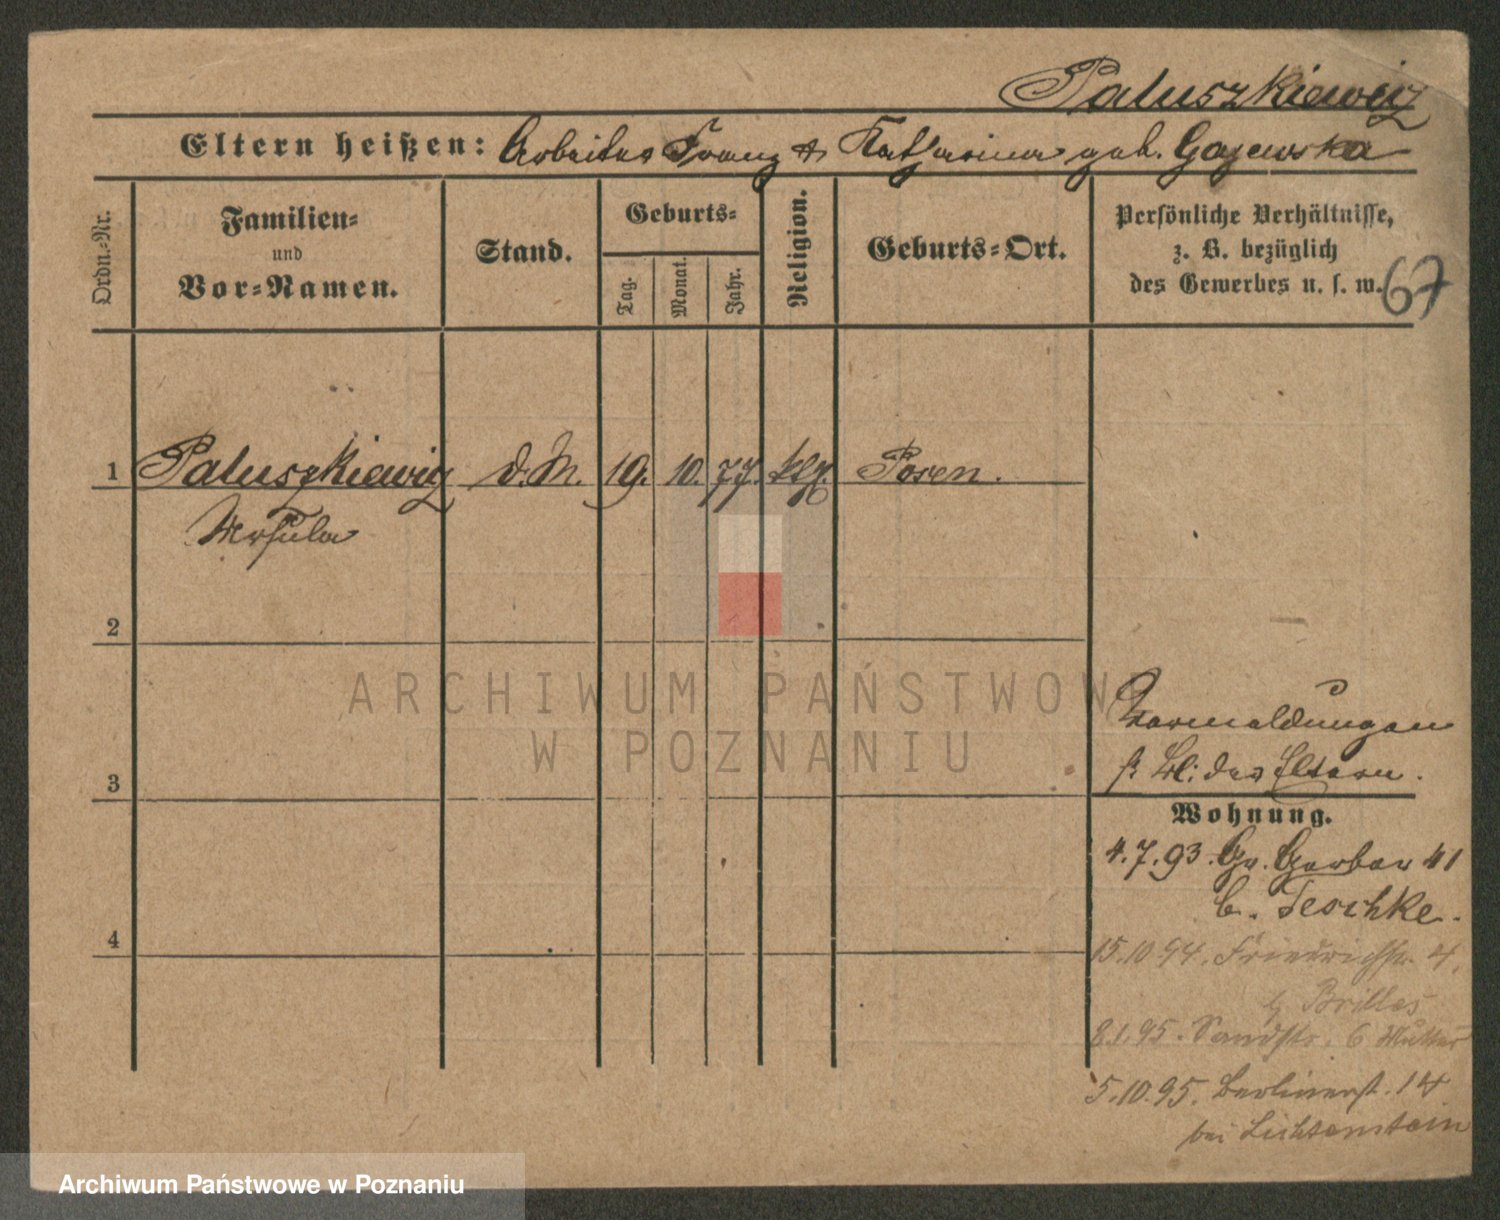 Paluszkiewicz
Eltern heißen: Arbeiter Franz & Katharina geb. Gajewska
Ordn.-Nr.
Familien-
und
Vor-Namen.
Stand.
Geburts-
Tag.
Monat.
Jahr.
Religion.
Geburts-Ort.
Persönliche Verhältnisse,
z. B. bezüglich
des Gewerbes u. s. w.
67
1 Paluszkiewicz d. M. 19. 10. 77. klg. Posen.
Ursula
2
3
4
Vormeldungen
s. Bl: der Eltern.
Wohnung.
4.7.93. Gr. Gerber 41
b. Teschke.
15.10.94. Friedrichstr. 4.
b Brilles
8.1.95. Sandstr. 6 Mutter
5.10.95. Berlinerst. 14.
bei Lichtenstein
ARCHIWUM PAŃSTWOW
W POZNANIU
Archiwum Państwowe w Poznaniu